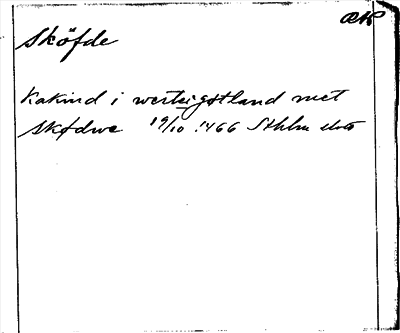 ÆH
Sköfde
Kakind i westeigøtland met
Skødwe 19/10 1466 Sthlm